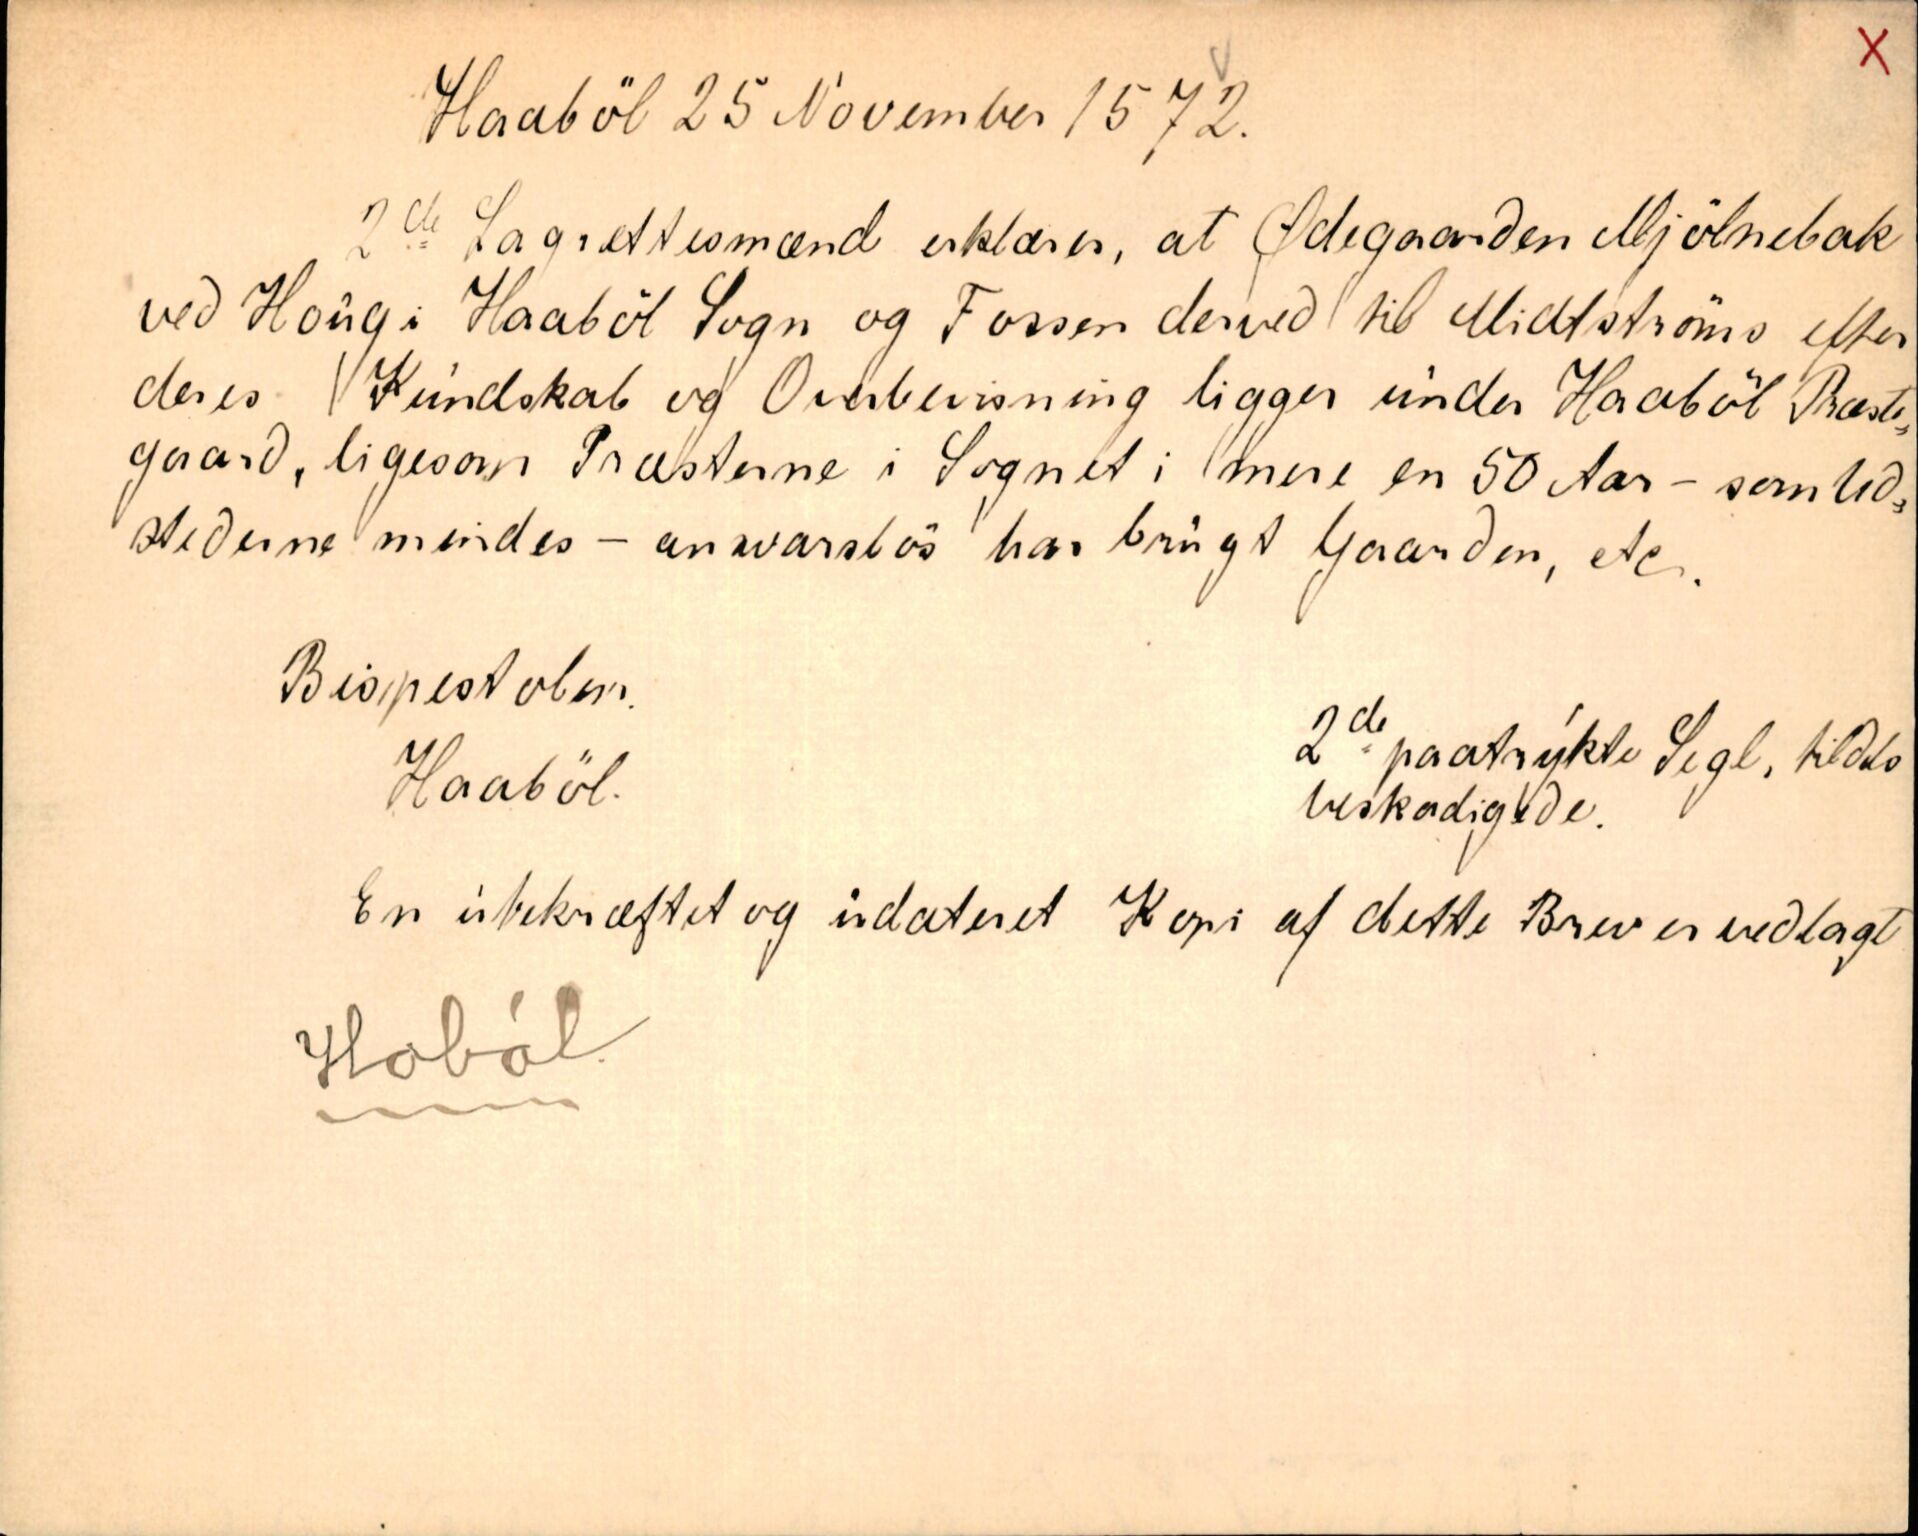 X
Haaböl 25 November 1572.
2de Lagrættesmænd erklærer, at Ødegaarden Mjölnebak
ved Houg i Haaböl Sogn og Fossen derved til Midtströms efter
deres Kundskab og Overbevisning ligger under Haaböl Præste„
gaard, ligesom Præsterne i Sognet i mere en 50 Aar – som Ud„
stederne mindes – answarslös har brugt Gaarden, etc.
Bispestolen.
Haaböl.
2de paatrykte Segl, tildels
beskadigede.
En ubekræftet og udateret Kopi af dette Brev er vedlagt
Hoböl.